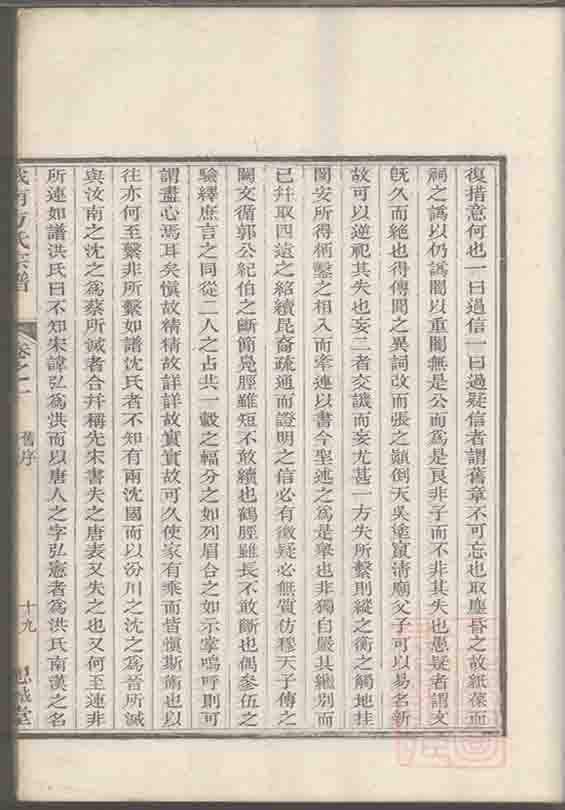 復措意何也一曰過信一曰過疑信者謂舊章不可忘也取塵昏之故紙葆而
祠之譌以仍譌闇以重闇無是公而爲是艮非子而不非其失也愚疑者謂文
旣久而絶也得傳聞之異詞改而張之顚倒天吳塗竄淸廟父子可以易名新
故可以逆祀其失也妄二者交譏而妄尤甚一方失所繫則縱之衡之觸地挂
閡安所得柄鑿之相入而牽連以書今聖述之爲是舉也非獨自嚴其繼別而
已幷取四遠之紹續昆裔疏通而證明之信必有徵疑必無質仿穆天子傳之
闕文循郭公紀伯之斷簡鳧脛雖短不敢續也鶴脛雖長不敢斷也偶參伍之
驗繹庶言之同從二人之占共一轂之輻分之如列眉合之如示掌嗚呼則可
謂盡心焉耳矣愼故精精故詳詳故實實故可久使家有乘而皆愼斯術也以
往亦何至繫非所繫如譜沈氏者不知有兩沈國而以汾川之沈之爲晉所滅
與汝南之沈之爲蔡所滅者合幷稱先宋書失之唐表又失之也又何至連非
所連如譜洪氏曰不知宋諱弘爲洪而以唐人之字弘憲者爲洪氏南漢之名
南方氏宗譜
卷之一
舊序
十九
思誠堂